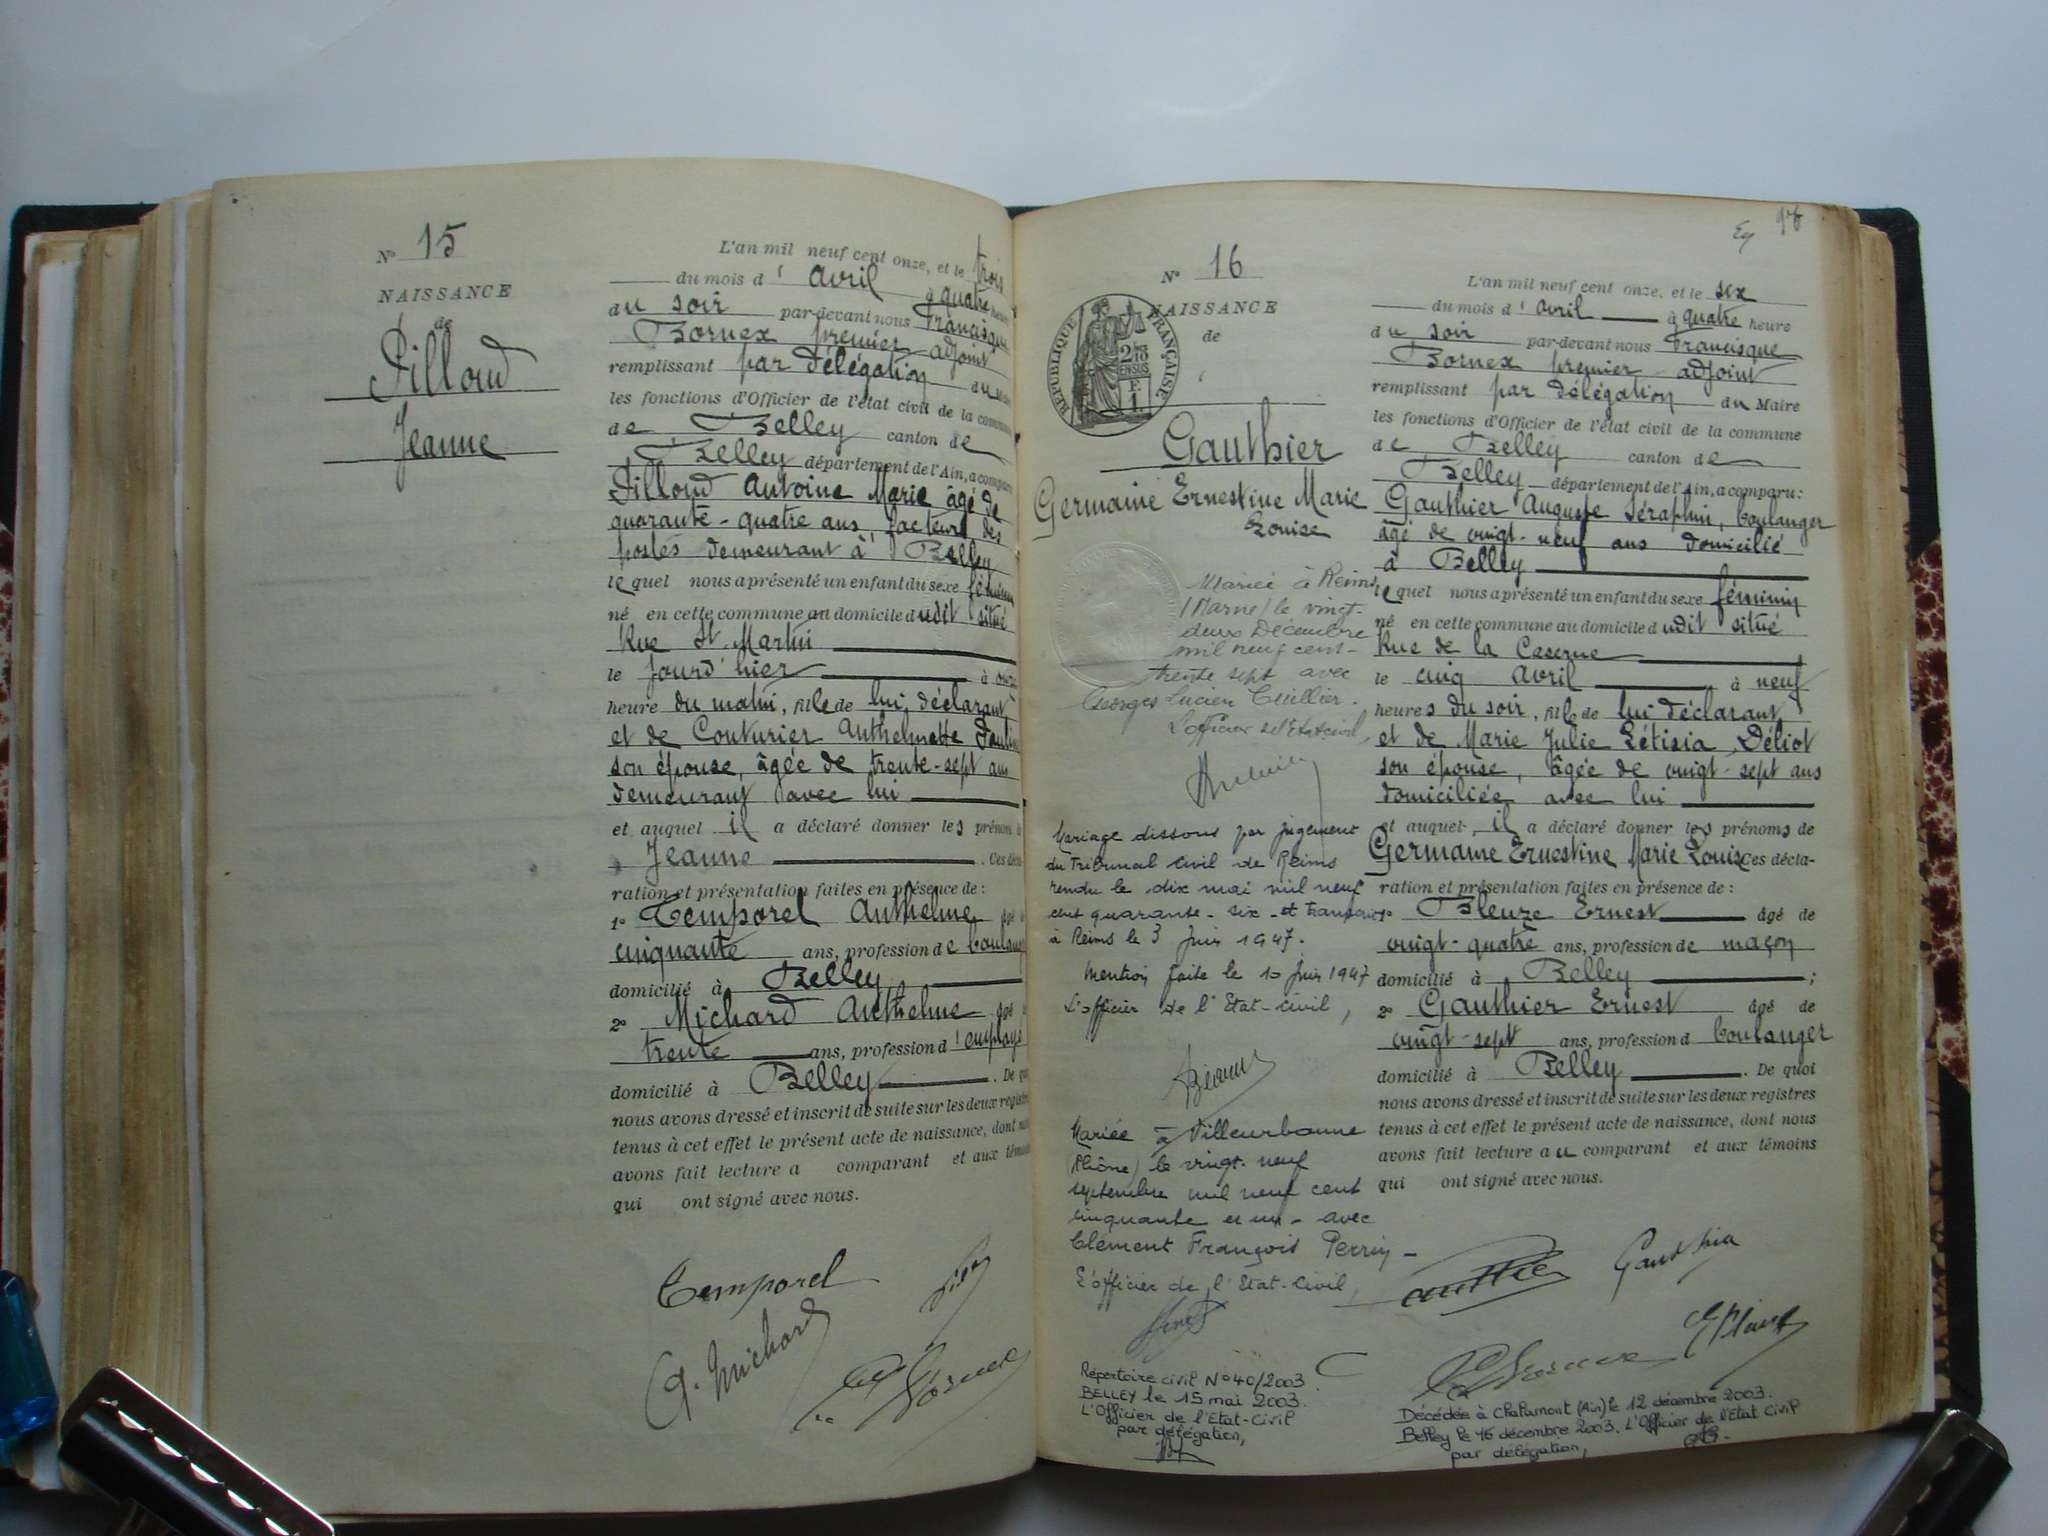 N° 15
NAISSANCE
de
Pilloud
Jeanne
L'an mil neuf cent onze, et le trois
du mois d'avril à quatre heure
du soir par-devant nous Francisque
Bornex premier adjoint
remplissant par délégation du Maire
les fonctions d'Officier de l'état civil de la commune
de Belley canton de
Belley département de l'Ain, a comparu
Pilloud Antoine Marie âgé de
quarante-quatre ans, facteur des
postes demeurant à Belley
lequel nous a présenté un enfant du sexe féminin
né en cette commune au domicile dudit situé
Rue St. Martin
le jourd'hier à onze
heure du matin, fille de lui déclarant
et de Couturier Anthelmette
son épouse, âgée de trente-sept ans
demeurant avec lui
et auquel il a déclaré donner les prénoms
Jeanne . Ces décla-
ration et présentation faites en présence de :
1° Temporel Anthelme âgé
cinquante ans, profession de boulanger
domicilié à Belley
2° Michard Anthelme âgé
trente ans, profession d'employé
domicilié à Belley . De quoi
nous avons dressé et inscrit de suite sur les deux registres
tenus à cet effet le présent acte de naissance, dont nous
avons fait lecture a comparant et aux témoins
qui ont signé avec nous.
Temporel
A. Michard
Bornex
98
N° 16
NAISSANCE
de
RÉPUBLIQUE FRANÇAISE
2 10
EN SUS
F.
1.
Gauthier
Germaine Ernestine Marie
Louise
Mariée à Reims
(Marne) le vingt-
deux Décembre
mil neuf cent-
trente sept avec
Georges Lucien
L'officier de l'Etat civil,
Mariage dissous par jugement
du Tribunal civil de Reims
rendu le dix mai mil neuf
cent quarante-six et transcrit
à Reims le 3 Juin 1947.
Mention faite le 10 Juin 1947
L'officier de l'Etat-civil,
Mariée à Villeurbanne
(Rhône) le vingt-neuf
septembre mil neuf cent
cinquante et un - avec
Clément François Perrin -
L'officier de l'Etat-Civil,
Répertoire civil N° 40/2003.
BELLEY le 15 mai 2003.
L'Officier de l'Etat-Civil
par délégation,
L'an mil neuf cent onze, et le six
du mois d'avril à quatre heure
du soir par-devant nous Francisque
Bornex premier adjoint
remplissant par délégation du Maire
les fonctions d'Officier de l'état civil de la commune
de Belley canton de
Belley département de l'Ain, a comparu :
Gauthier Auguste Séraphin, boulanger
âgé de vingt-neuf ans domicilié
à Belley
lequel nous a présenté un enfant du sexe féminin
né en cette commune au domicile dudit situé
Rue de la Caserne
le cinq avril à neuf
heures du soir, fille de lui déclarant
et de Marie Julie Létisia Déliot
son épouse, âgée de vingt-sept ans
domiciliée avec lui
et auquel il a déclaré donner les prénoms de
Germaine Ernestine Marie Louise Ces décla-
ration et présentation faites en présence de :
1° Bleuze Ernest âgé de
vingt-quatre ans, profession de maçon
domicilié à Belley ;
2° Gauthier Ernest âgé de
vingt-sept ans, profession d boulanger
domicilié à Belley . De quoi
nous avons dressé et inscrit de suite sur les deux registres
tenus à cet effet le présent acte de naissance, dont nous
avons fait lecture au comparant et aux témoins
qui ont signé avec nous.
Gauthier
Gauthier
Bornex
Décédée à Chalamont (Ain) le 12 décembre 2003.
Belley le 16 décembre 2003. L'Officier de l'Etat Civil
par délégation,